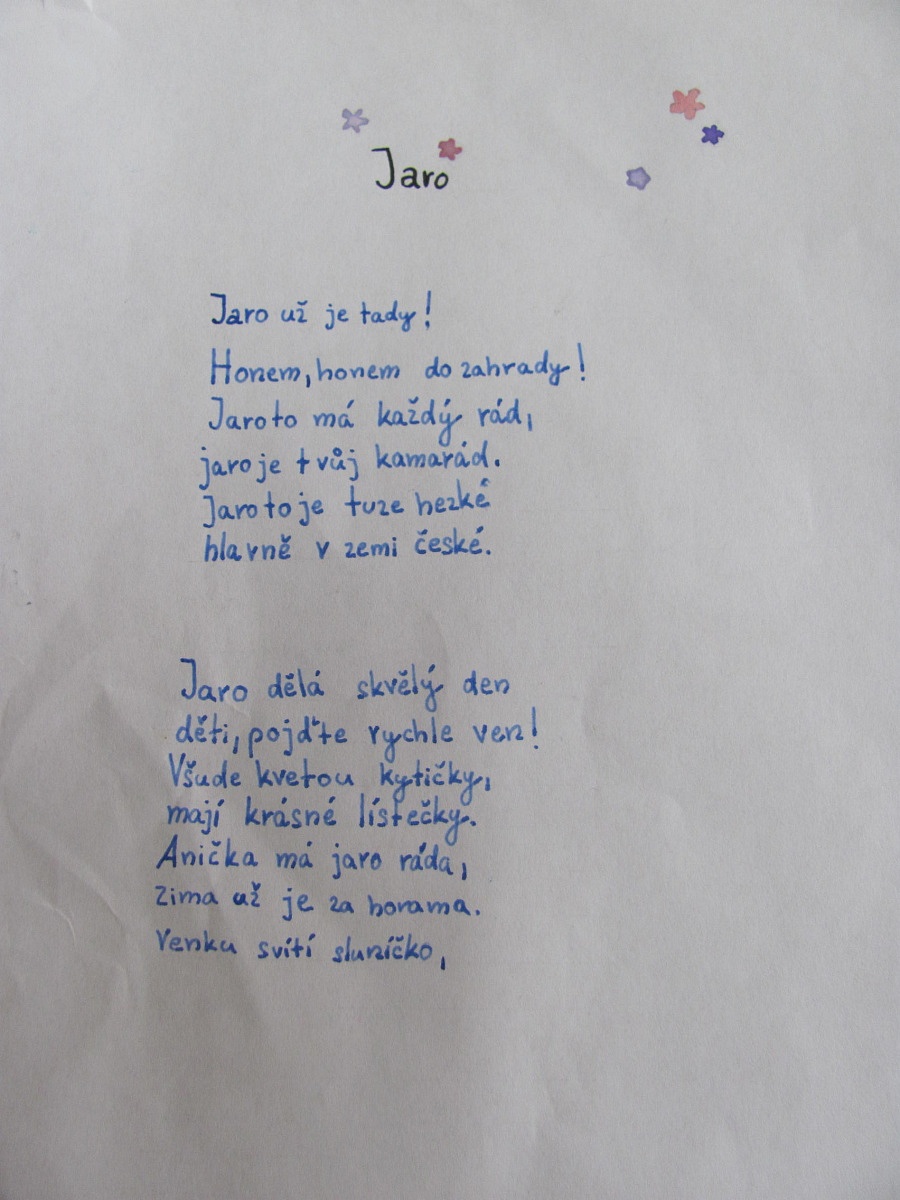 Jaro
Jaro už je tady!
Honem, honem do zahrady!
Jaro to má každý rád,
jaro je tvůj kamarád.
Jaro to je tuze hezké
hlavně v zemi české.
Jaro dělá skvělý den
děti, pojďte rychle ven!
Všude kvetou kytičky,
mají krásné lístečky.
Anička má jaro ráda,
zima už je za horama.
Venku svítí sluníčko,